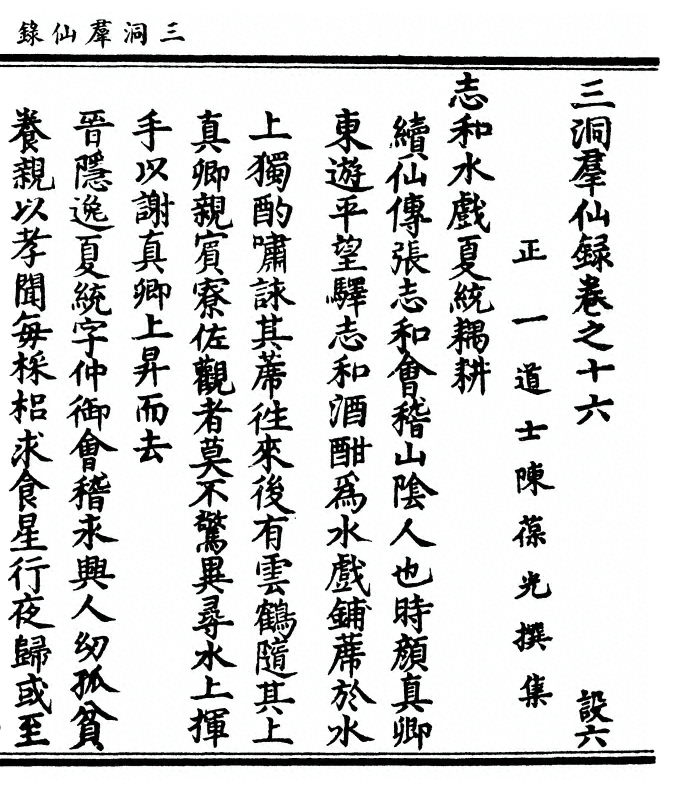 三洞羣仙錄
三洞羣仙録卷之十六
設六
正一道士陳葆光撰集
志和水戲夏統耦耕
續仙傳張志和會稽山陰人也時顔真卿
東遊平望驛志和酒酣爲水戲鋪蓆於水
上獨酌嘯詠其蓆往來後有雲鶴隨其上
真卿親賓寮佐觀者莫不驚異尋水上揮
手以謝真卿上昇而去
晉隱逸夏統字仲御會稽永興人幼孤貧
養親以孝聞毎採梠求食星行夜歸或至